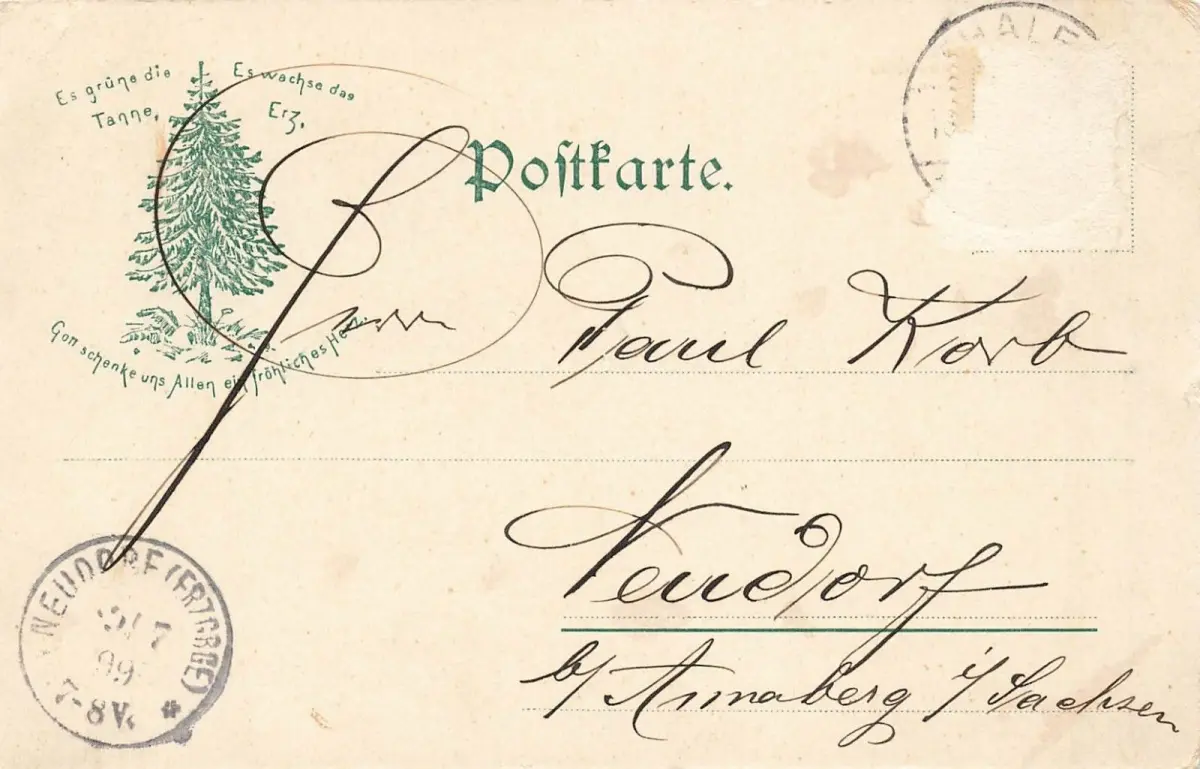 Es grüne die Tanne,
Es wachse das Erz,
Gott schenke uns Allen ein fröhliches
Postkarte.
THALE
Herrn
Paul Korb
Neudorf
b/ Annaberg i/ Sachsen
NEUDORF (ERZGBGE)
7
99
7-8 V.
*